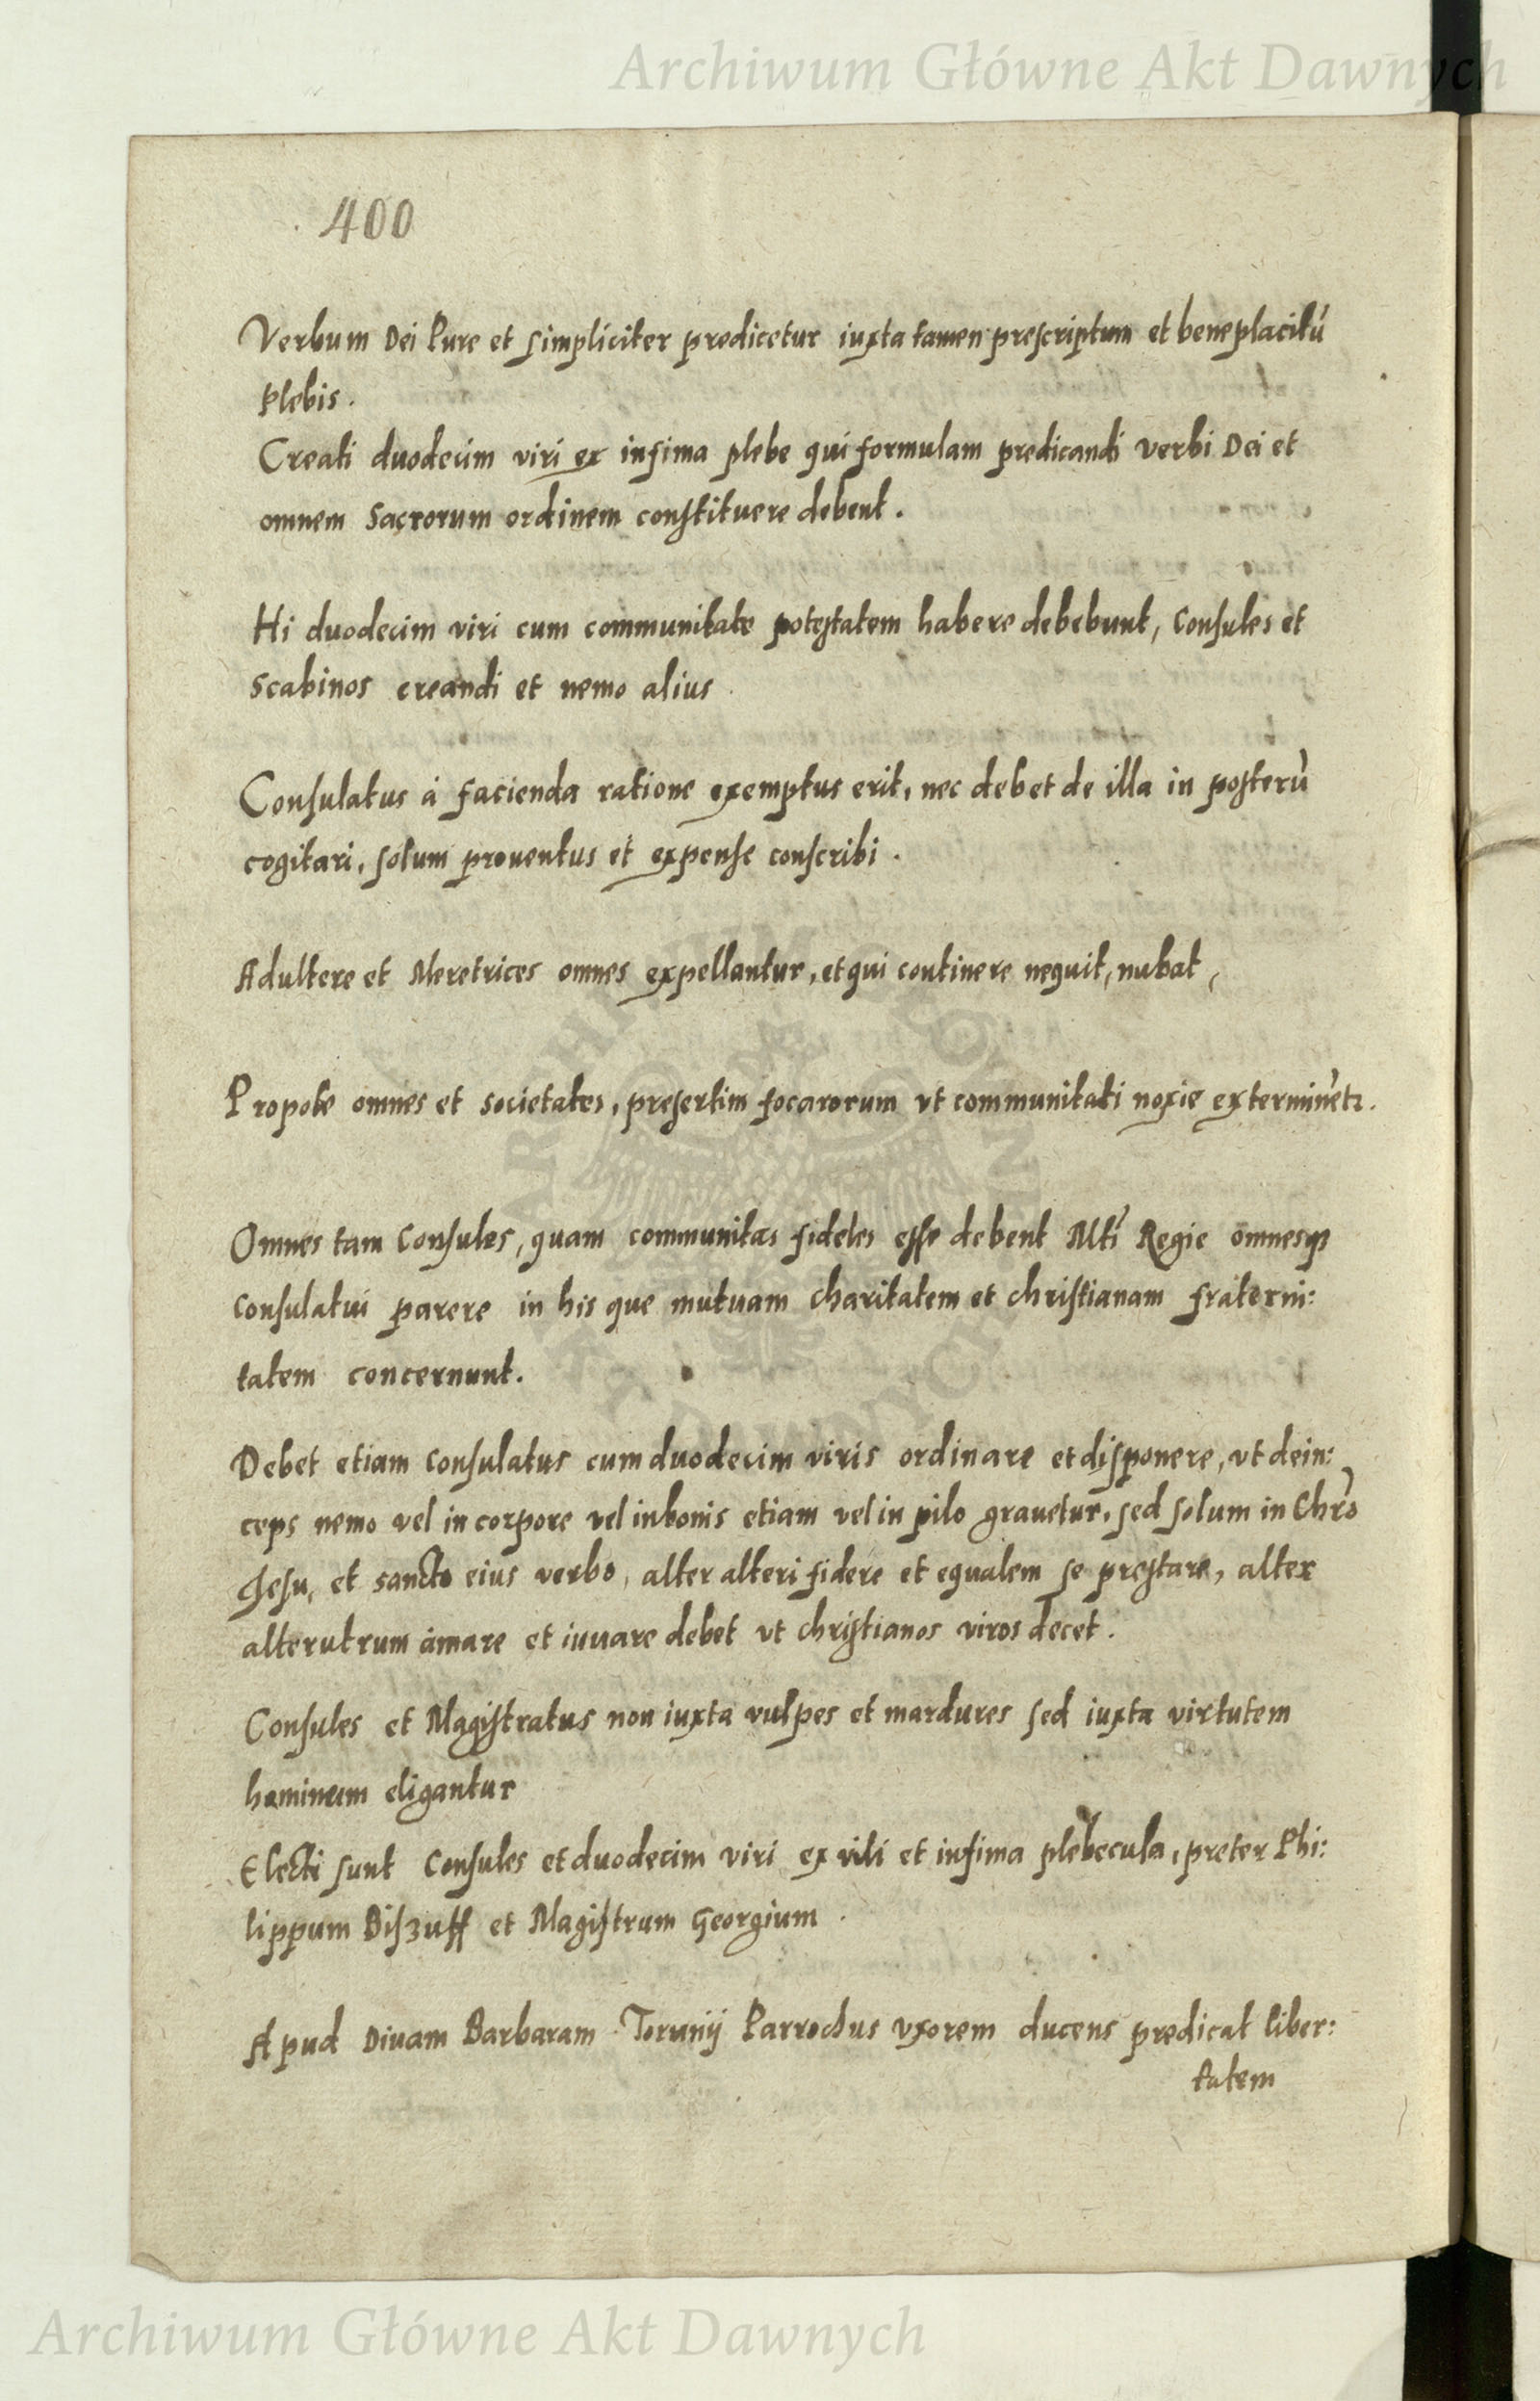 Archiwum Główne Akt Dawnych
400
Verbum Dei Pure et simpliciter predicetur iuxta tamen prescriptum et beneplacitū
Plebis.
Creati duodecim viri ex infima plebe qui formulam predicandi verbi Dei et
omnem Sacrorum ordinem constituere debent.
Hi duodecim viri cum communitate potestatem habere debebunt, Consules et
Scabinos creandi et nemo alius.
Consulatus à facienda ratione exemptus erit, nec debet de illa in posterū
cogitari, solum prouentus et expense conscribi.
Adultere et Meretrices omnes expellantur, et qui continere nequit, nubat,
Propole omnes et Societates, presertim focarorum vt communitati noxie exterminēt​r.
Omnes tam Consules, quam communitas fideles esse debent Mti Regie omnesq;
Consulatui parere in his que mutuam charitatem et christianam fraterni:
tatem concernunt.
Debet etiam Consulatus cum duodecim viris ordinare et disponere, vt dein:
ceps nemo vel in corpore vel in bonis etiam vel in pilo grauetur, sed solum in Chro
Jesu, et sancto eius verbo, alter alteri fidere et equalem se prestare, alter
alterutrum amare et iuuare debet vt christianos viros decet.
Consules et Magistratus non iuxta vulpes et mardures sed iuxta virtutem
hominum eligantur
Electi sunt Consules et duodecim viri ex vili et infima plebecula, preter Phi:
lippum Biszuff et Magistrum Georgium.
Apud Diuam Barbaram Torunij Parrochus vxorem ducens predicat liber:
tatem
Archiwum Główne Akt Dawnych